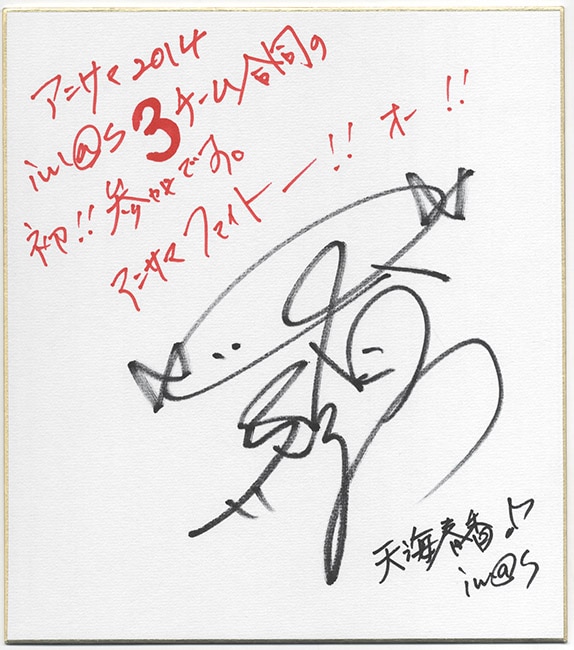 アニサマ2014
im@s 3チーム合同の
初!! 参加です。
アニサマ ファイトー!! オー!!
天海春香♪
im@s